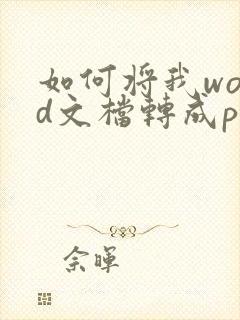 如何将我wo
d文檔轉成p
佘暉